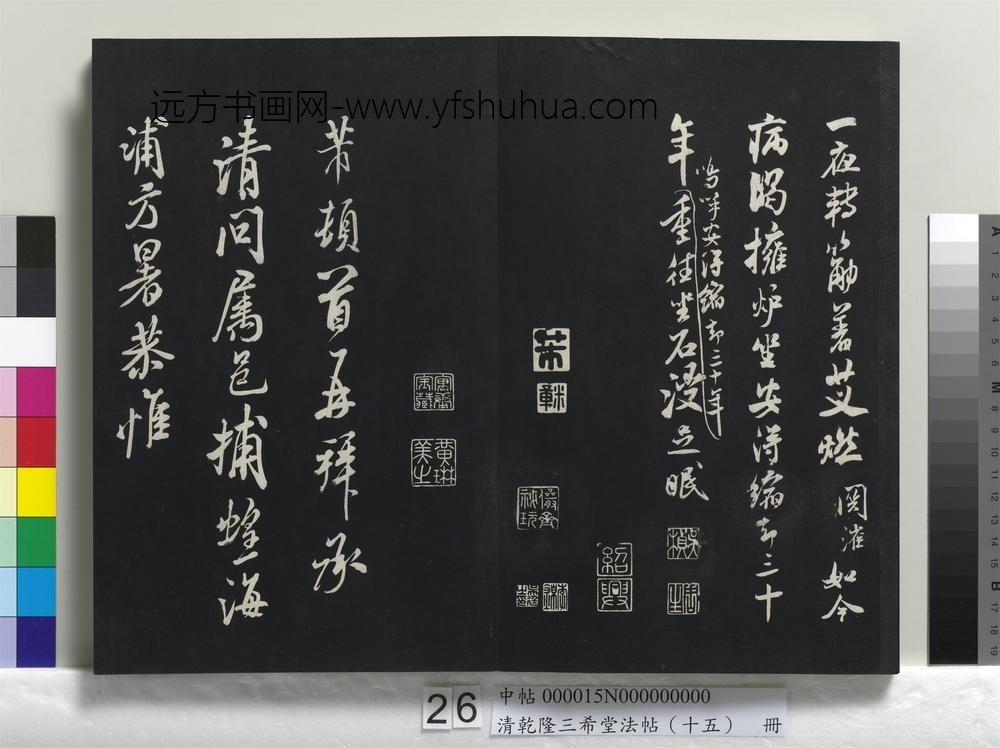 远方书画网-www.yfshuhua.com
一夜轉筋著艾燃 関灌 如今
病渴擁炉坐安得縮却三十
年重往坐石浸足眠
嗚呼安得縮却三十年
芾
黻
紹興
芾頓首再拜承
清問屬邑捕蝗海
浦方暑恭惟
黄琳美之
26
中帖 000015N000000000
清乾隆三希堂法帖（十五） 冊
A
1
2
3
4
5
6
M
8
9
10
11
12
13
14
15
B
17
18
19